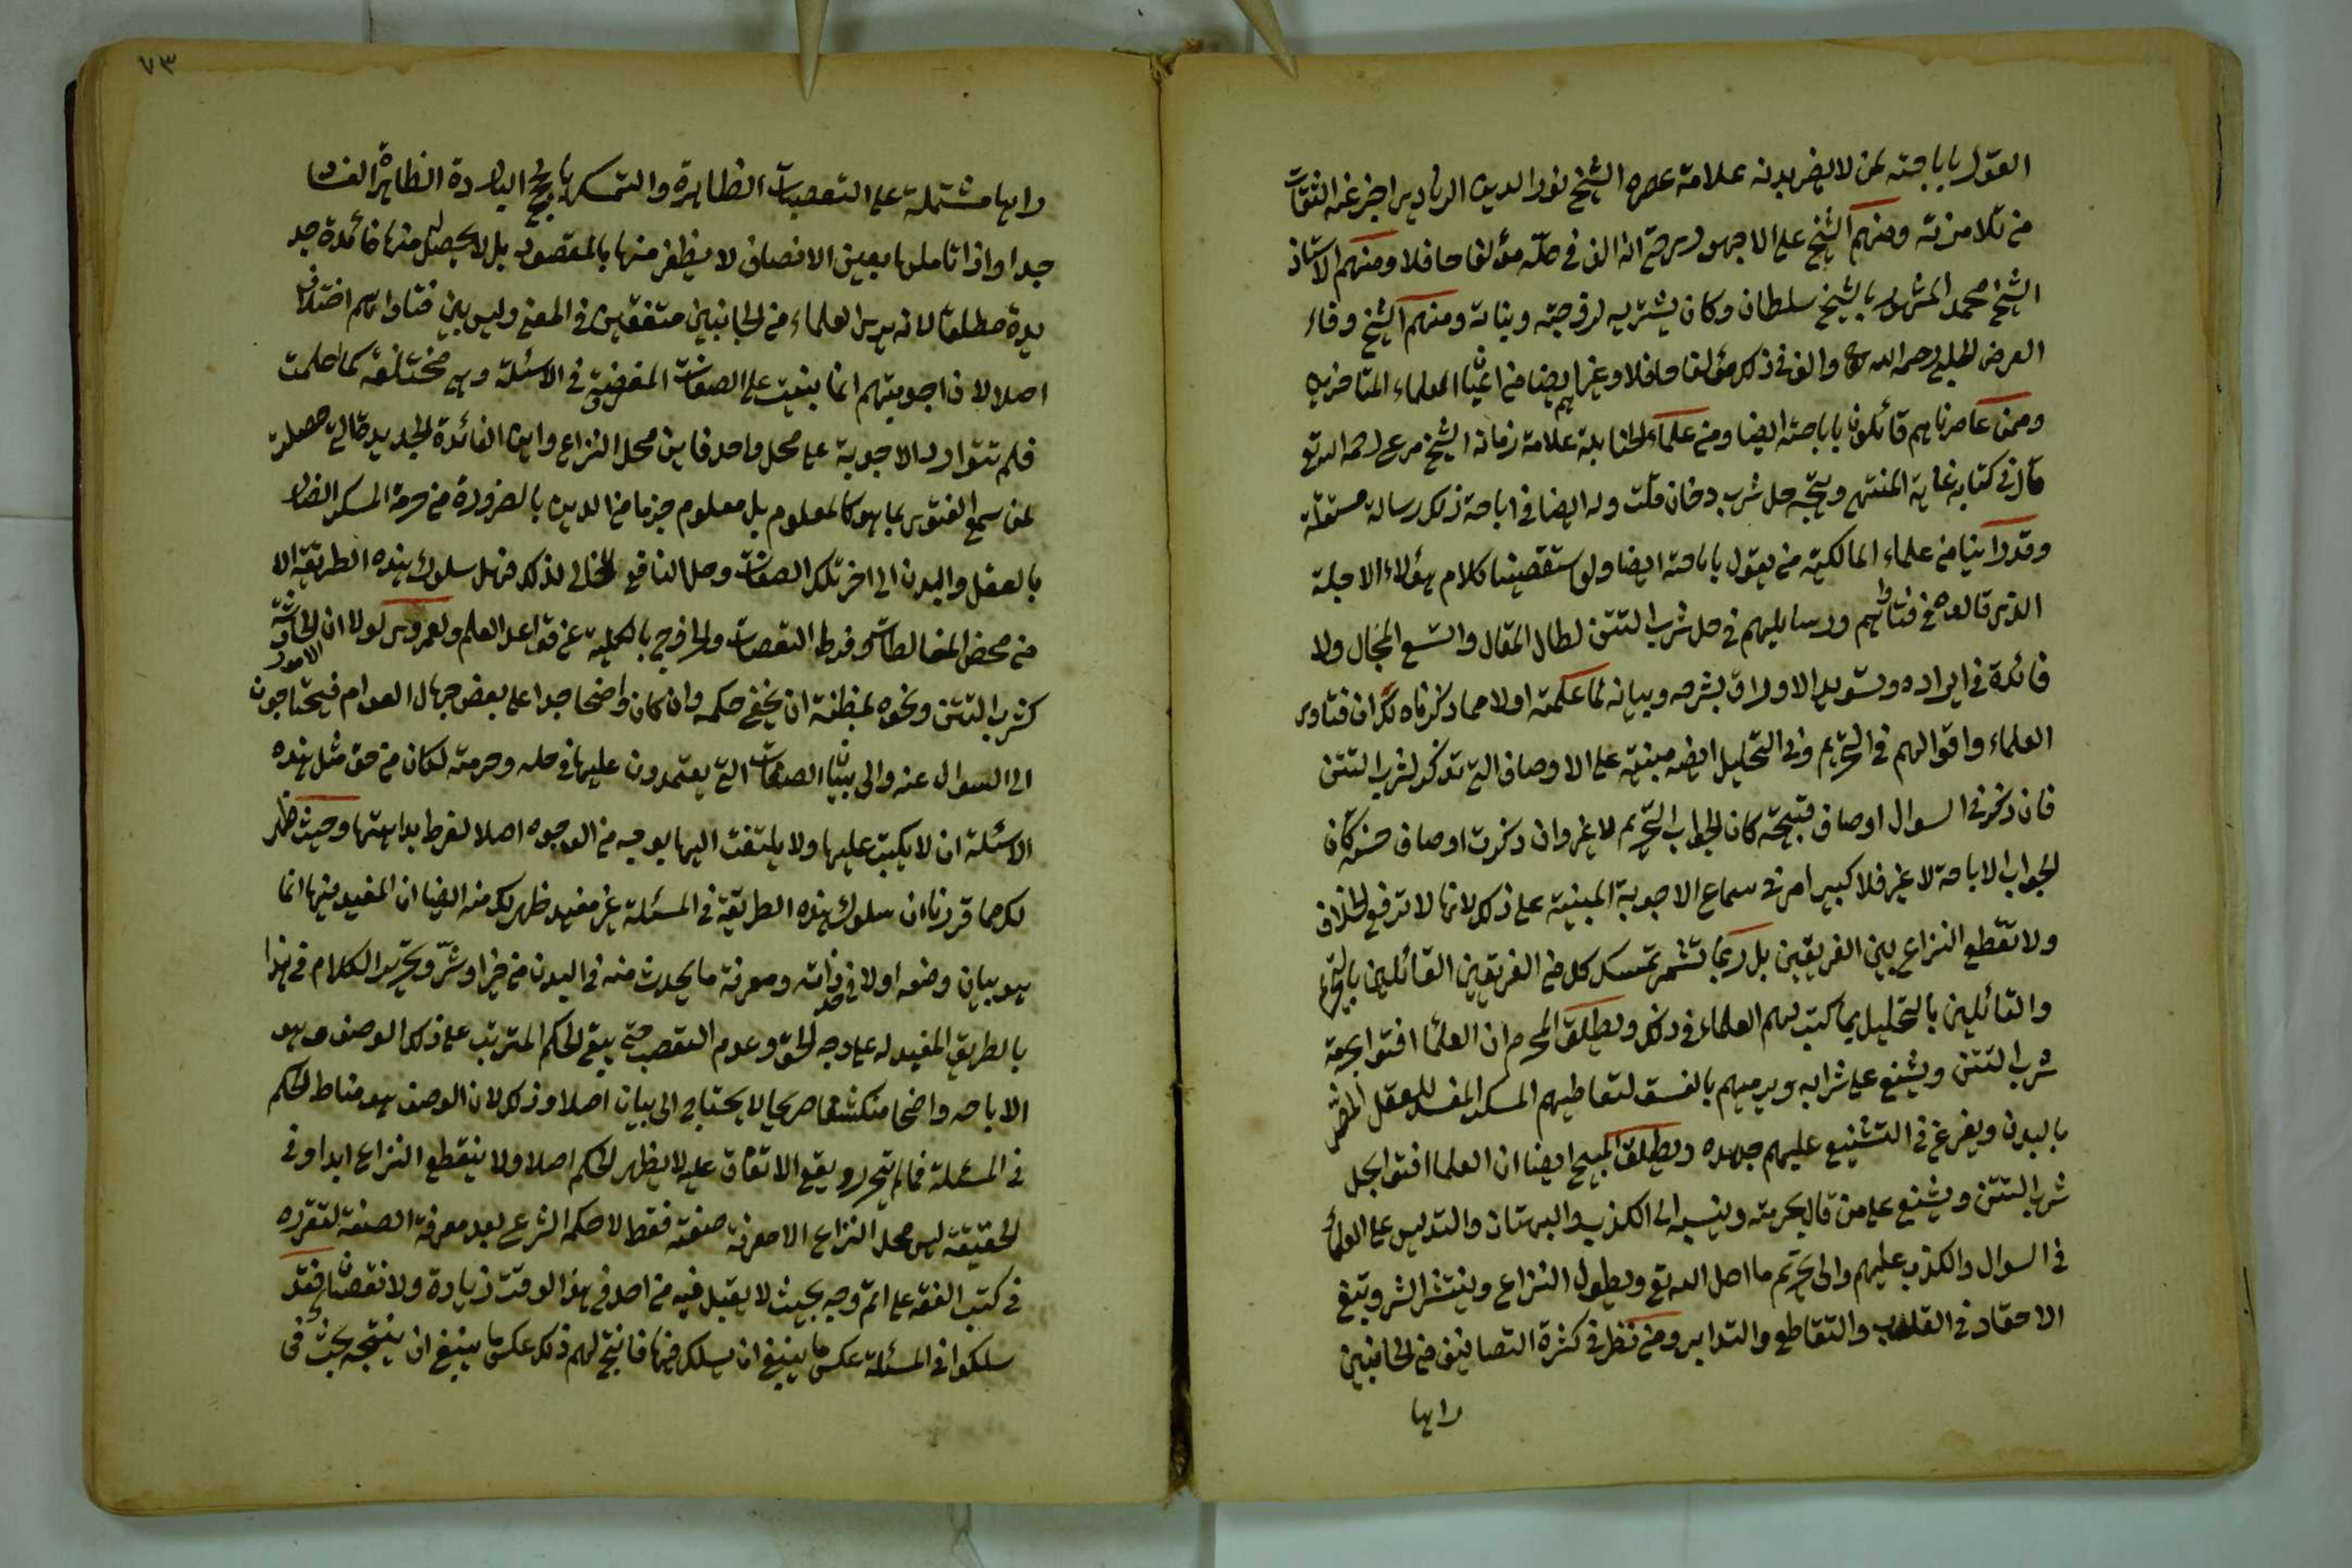 القول باباحته لمن لا يضر بدنه علامة عصره الشيخ نور الدين الزيادي اخبر عنه الثقات
من تلامذته ومنهم الشيخ علي الاجهوري حتى انه الف في حله مؤلفا حافلا ومنهم الاستاذ
الشيخ محمد المشهور بالشيخ سلطان وكان يشتريه لزوجته وبناته ومنهم الشيخ وفاء
العرضي الحلبي رحمه الله والف في ذلك مؤلفا حافلا وغيرهم ايضا من العلماء المتاخرين
وممن عاصرناهم قائلون باباحته ايضا ومن علماء الحنابلة علامة زمانه الشيخ مرعي رحمه الله تع
قال في كتابه غاية المنتهى ويتجه حل شرب دخان قلت وله ايضا في اباحة ذلك رسالة مستقلة
وقد راينا من علماء المالكية من يقول باباحته ايضا ولو استقصينا كلام هؤلاء الاجلة
الذي قالوه في فتاواهم ورسايلهم في حل شرب التتن لطال المقال واتسع المجال ولا
فائدة في ايراده وتسويد الاوراق بشرحه وبيانه لما علمته اولا مما ذكرناه لك ان فتاوى
العلماء واقوالهم في التحريم وفي التحليل ايضه مبنية على الاوصاف التي تذكر لشرب التتن
فان ذكر في السوال اوصاف قبيحة كان الجواب التحريم لا غير وان ذكرت اوصاف حسنه كان
الجواب الاباحة لا غير فلا كبير امر في سماع الاجوبة المبنية على ذلك لانها لا ترفع الخلاف
ولا تقطع النزاع بين الفريقين بل ربما تثمر تمسك كل من الفريقين القائلين بالتحريم
والقائلين بالتحليل بما كتب لهم العلماء في ذلك ويطلق المحرم ان العلما افتوا بحرمة
شرب التتن ويشنع على شرابه ويرميهم بالفسق لتعاطيهم المسكر المفسد للعقل المضر
بالبدن ويفرغ في التشنيع عليهم جهده ويطلق المبيح ايضا ان العلما افتوا بحل
شرب التتن ويشنع على من قال بحرمته وينسبه الى الكذب والبهتان والتدليس على العلماء
في السوال والكذب عليهم والى تحريم ما احل الله تع ويطول النزاع وينتشر الشر وتبقى
الاحقاد في القلوب والتقاطع والتدابر ومن نظر في كثرة التصانيف من الجانبين
راها
٧٣
راها مشتملة على التعصبات الظاهرة والتمسك بالحجج الباردة الظاهرة الفساد
جدا واذا تاملها بعين الانصاف لا يظفر منها بالمقصود بل لا يحصل منها فائدة جد
يدة مطلقا لانه يرى العلماء من الجانبين متفقين في المعنى وليس بين فتاواهم اختلاف
اصلا لان اجوبتهم انما بنيت على الصفات المفروضة في الاسئلة وهي مختلفة كما علمت
فلم تتوارد الاجوبة على محل واحد فاين محل النزاع واين الفائدة الجديدة التي حصلت
لمن سمع الفتوى بما هو كالمعلوم بل معلوم جزما من الدين بالضرورة من حرمة المسكر الضار
بالعقل والبدن الى اخر تلك الصفات وحل النافع الخالي لذلك فهل سلوك هذه الطريقة الا
من محض المغالطات وفرط التعصبات والخروج بالكلية عن قواعد العلم ولعمري لولا ان الحادثة
كشرب التتن ونحوه الامور لمظنة ان يخفى حكمه وان كان واضحا جدا على بعض جهال العوام فيحتاجون
الى السوال عنه والى بيان الصفات التي يعتمدون عليها في حله وحرمته لكان من حق مثل هذه
الاسئلة ان لا يكتب عليها ولا يلتفت اليها بوجه من الوجوه اصلا لفرط بداهتها وحيث ظهر
لك مما قررناه ان سلوك هذه الطريقة في المسئلة غير مفيد ظهر لك منه ايضا ان المفيد فيها انما
هو بيان وضعه اولا في حد ذاته ومعرفة ما يحدث منه في البدن من خير او شر وتحرير الكلام في هذا
بالطريق المفيد له على وجه الحق وعدم التعصب حتى يبقى الحكم المترتب على ذلك الوصف وهو
الاباحه واضحا منكشفا صريحا لا يحتاج الى بيان اصلا وذلك لان الوصف هو مناط الحكم
في المسئلة فما لم يتحرر ويقع الاتفاق عليه لا يظهر الحكم اصلا ولا ينقطع النزاع ابدا وفي
الحقيقة ليس محل النزاع الا معرفة صفته فقط لا حكمه الشرعي بعد معرفة الصفة لتقرره
في كتب الفقه على اتم وجه بحيث لا يقبل فيه من احد في هذا الوقت زيادة ولا نقصانا فقد
سلكوا في المسئلة عكس ما ينبغي ان يسلك فيها فانتج لهم ذلك عكس ما ينبغي ان ينتجه بحث في